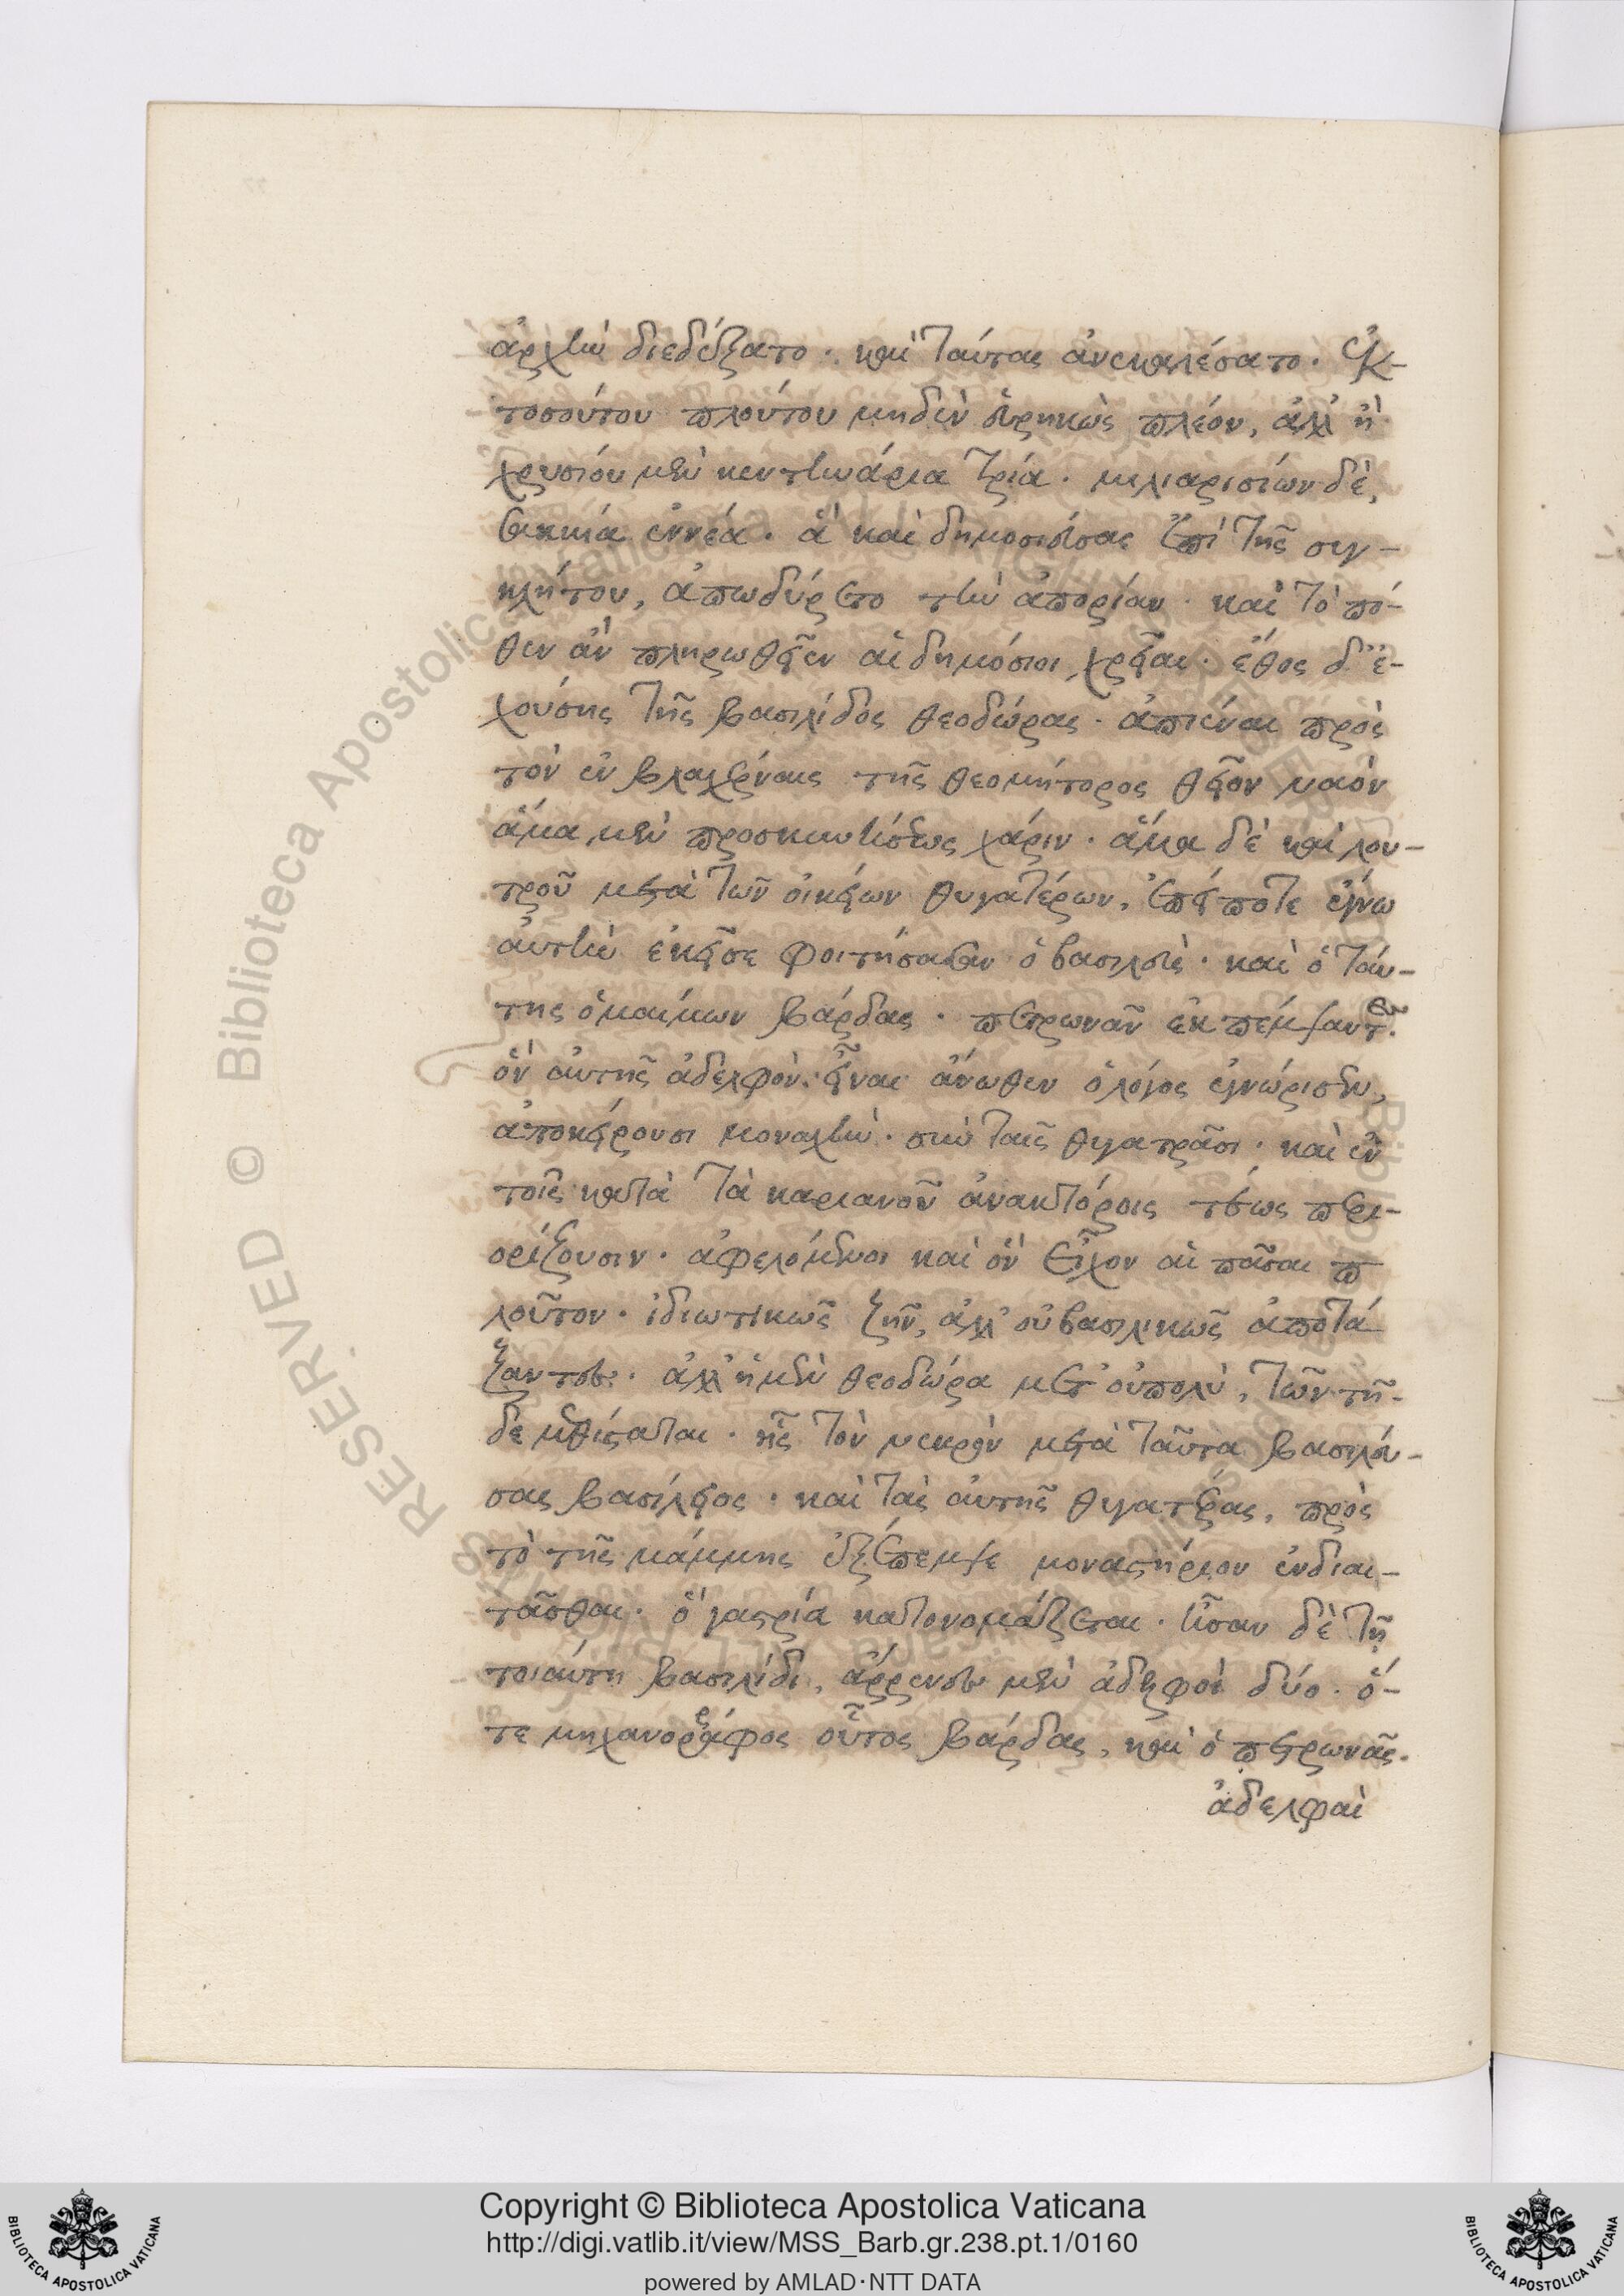 ἀρχὴν διεδέξατο· καὶ ταύτας ἀνεκαλέσατο· ἐκ-
τοσούτου πλούτου μηδὲν εὑρηκὼς πλέον, ἀλλ' ἢ
χρυσίου μὲν κεντηνάρια τρία· μιλιαρισίων δὲ,
σακκία ἐννέα· ἃ καὶ δημοσιεύσας ἐπὶ τῆς συγ-
κλήτου, ἀπωδύρετο τὴν ἀπορίαν· καὶ τὸ πό-
θεν ἂν πληρωθεῖεν αἱ δημόσιοι χρεῖαι· ἔθος δ' ἐ-
χούσης τῆς βασιλίδος θεοδώρας· ἀπιέναι πρὸς
τὸν ἐν βλαχέρναις τῆς θεομήτορος θεῖον ναὸν
ἅμα μὲν προσκυνήσεως χάριν· ἅμα δὲ καὶ λου-
τροῦ μετὰ τῶν οἰκείων θυγατέρων, ἐπεί ποτε ἔγνω
αὐτὴν ἐκεῖσε φοιτήσασαν ὁ βασιλεὺς· καὶ ὁ ταύ-
της ὁμαίμων βάρδας· πετρωνᾶν ἐκπέμψαντες
ὃν αὐτῆς ἀδελφὸν· εἶναι ἄνωθεν ὁ λόγος ἐγνώρισεν,
ἀποκείρουσι μοναχὴν· σὺν ταῖς θυγατράσι· καὶ ἐν
τοῖς κατὰ τὰ καριανοῦ ἀνακτόροις τέως περι-
ορίζουσιν· ἀφελόμενοι καὶ ὃν εἶχον αἱ πᾶσαι π
λοῦτον· ἰδιωτικῶς ζῆν, ἀλλ' οὐ βασιλικῶς ἀποτά
ξαντες· ἀλλ' ἡ μὲν θεοδώρα μετ' οὐπολὺ, τῶν τῇ-
δε μεθίσταται· ἧς τὸν νεκρὸν μετὰ ταῦτα βασιλεύ-
σας βασίλειος· καὶ τὰς αὐτῆς θυγατέρας, πρὸς
τὸ τῆς μάμμης ἐξέπεμψε μοναστήριον ἐνδιαι-
τᾶσθαι· ὃ γαστρία κατονομάζεται· ἦσαν δὲ τῇ
τοιαύτη βασιλίδι, ἄρρενες μὲν ἀδελφοὶ δύο· ὅ-
τε μηχανορράφος οὗτος βάρδας, καὶ ὁ πετρωνᾶς·
ἀδελφαὶ
Copyright © Biblioteca Apostolica Vaticana
http://digi.vatlib.it/view/MSS_Barb.gr.238.pt.1/0160
powered by AMLAD·NTT DATA